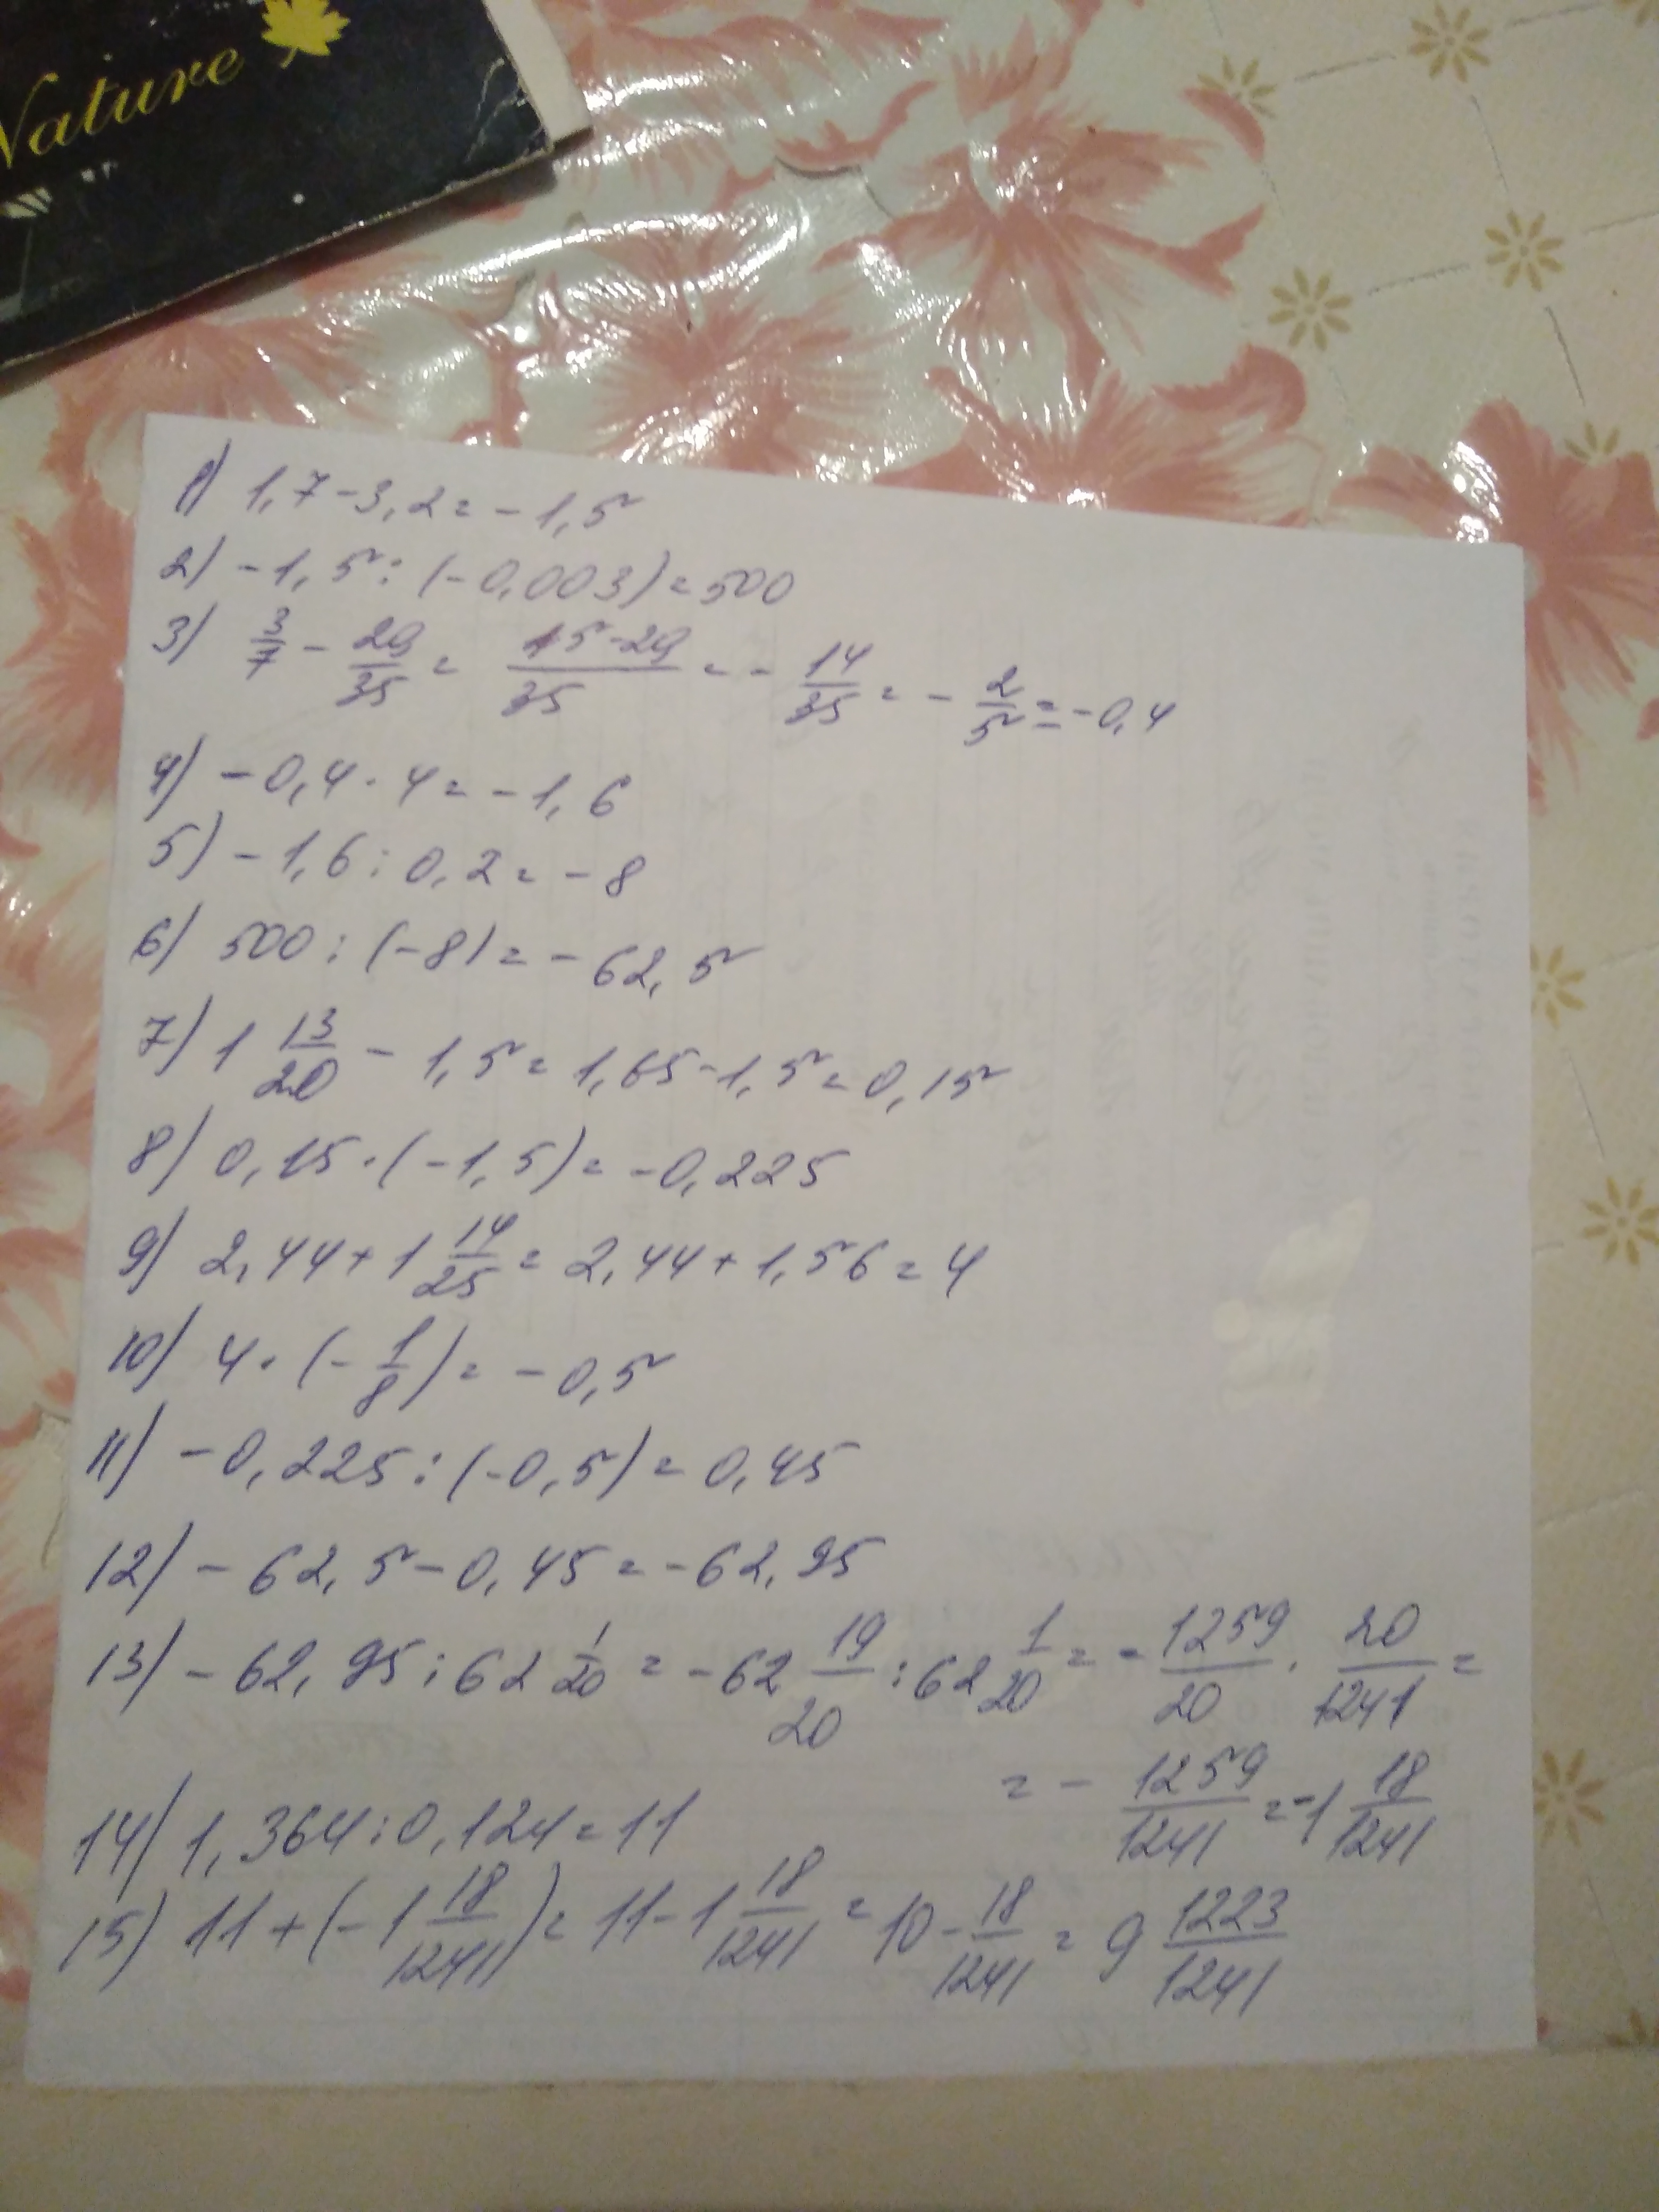 Nature
1) 1,7-3,2=-1,5
2) -1,5:(-0,003)=500
3) 3/7 - 29/35 = 15-29/35 = - 14/35 = - 2/5 = -0,4
4) -0,4·4=-1,6
5) -1,6:0,2=-8
6) 500:(-8)=-62,5
7) 1 13/20 - 1,5=1,65-1,5=0,15
8) 0,15·(-1,5)=-0,225
9) 2,44+1 14/25 = 2,44+1,56=4
10) 4·(-1/8)=-0,5
11) -0,225:(-0,5)=0,45
12) -62,5-0,45=-62,95
13) -62,95:62 1/20 = -62 19/20 : 62 1/20 = - 1259/20 · 20/1241 =
= - 1259/1241 = -1 18/1241
14) 1,364:0,124=11
15) 11+(-1 18/1241)= 11-1 18/1241 = 10- 18/1241 = 9 1223/1241